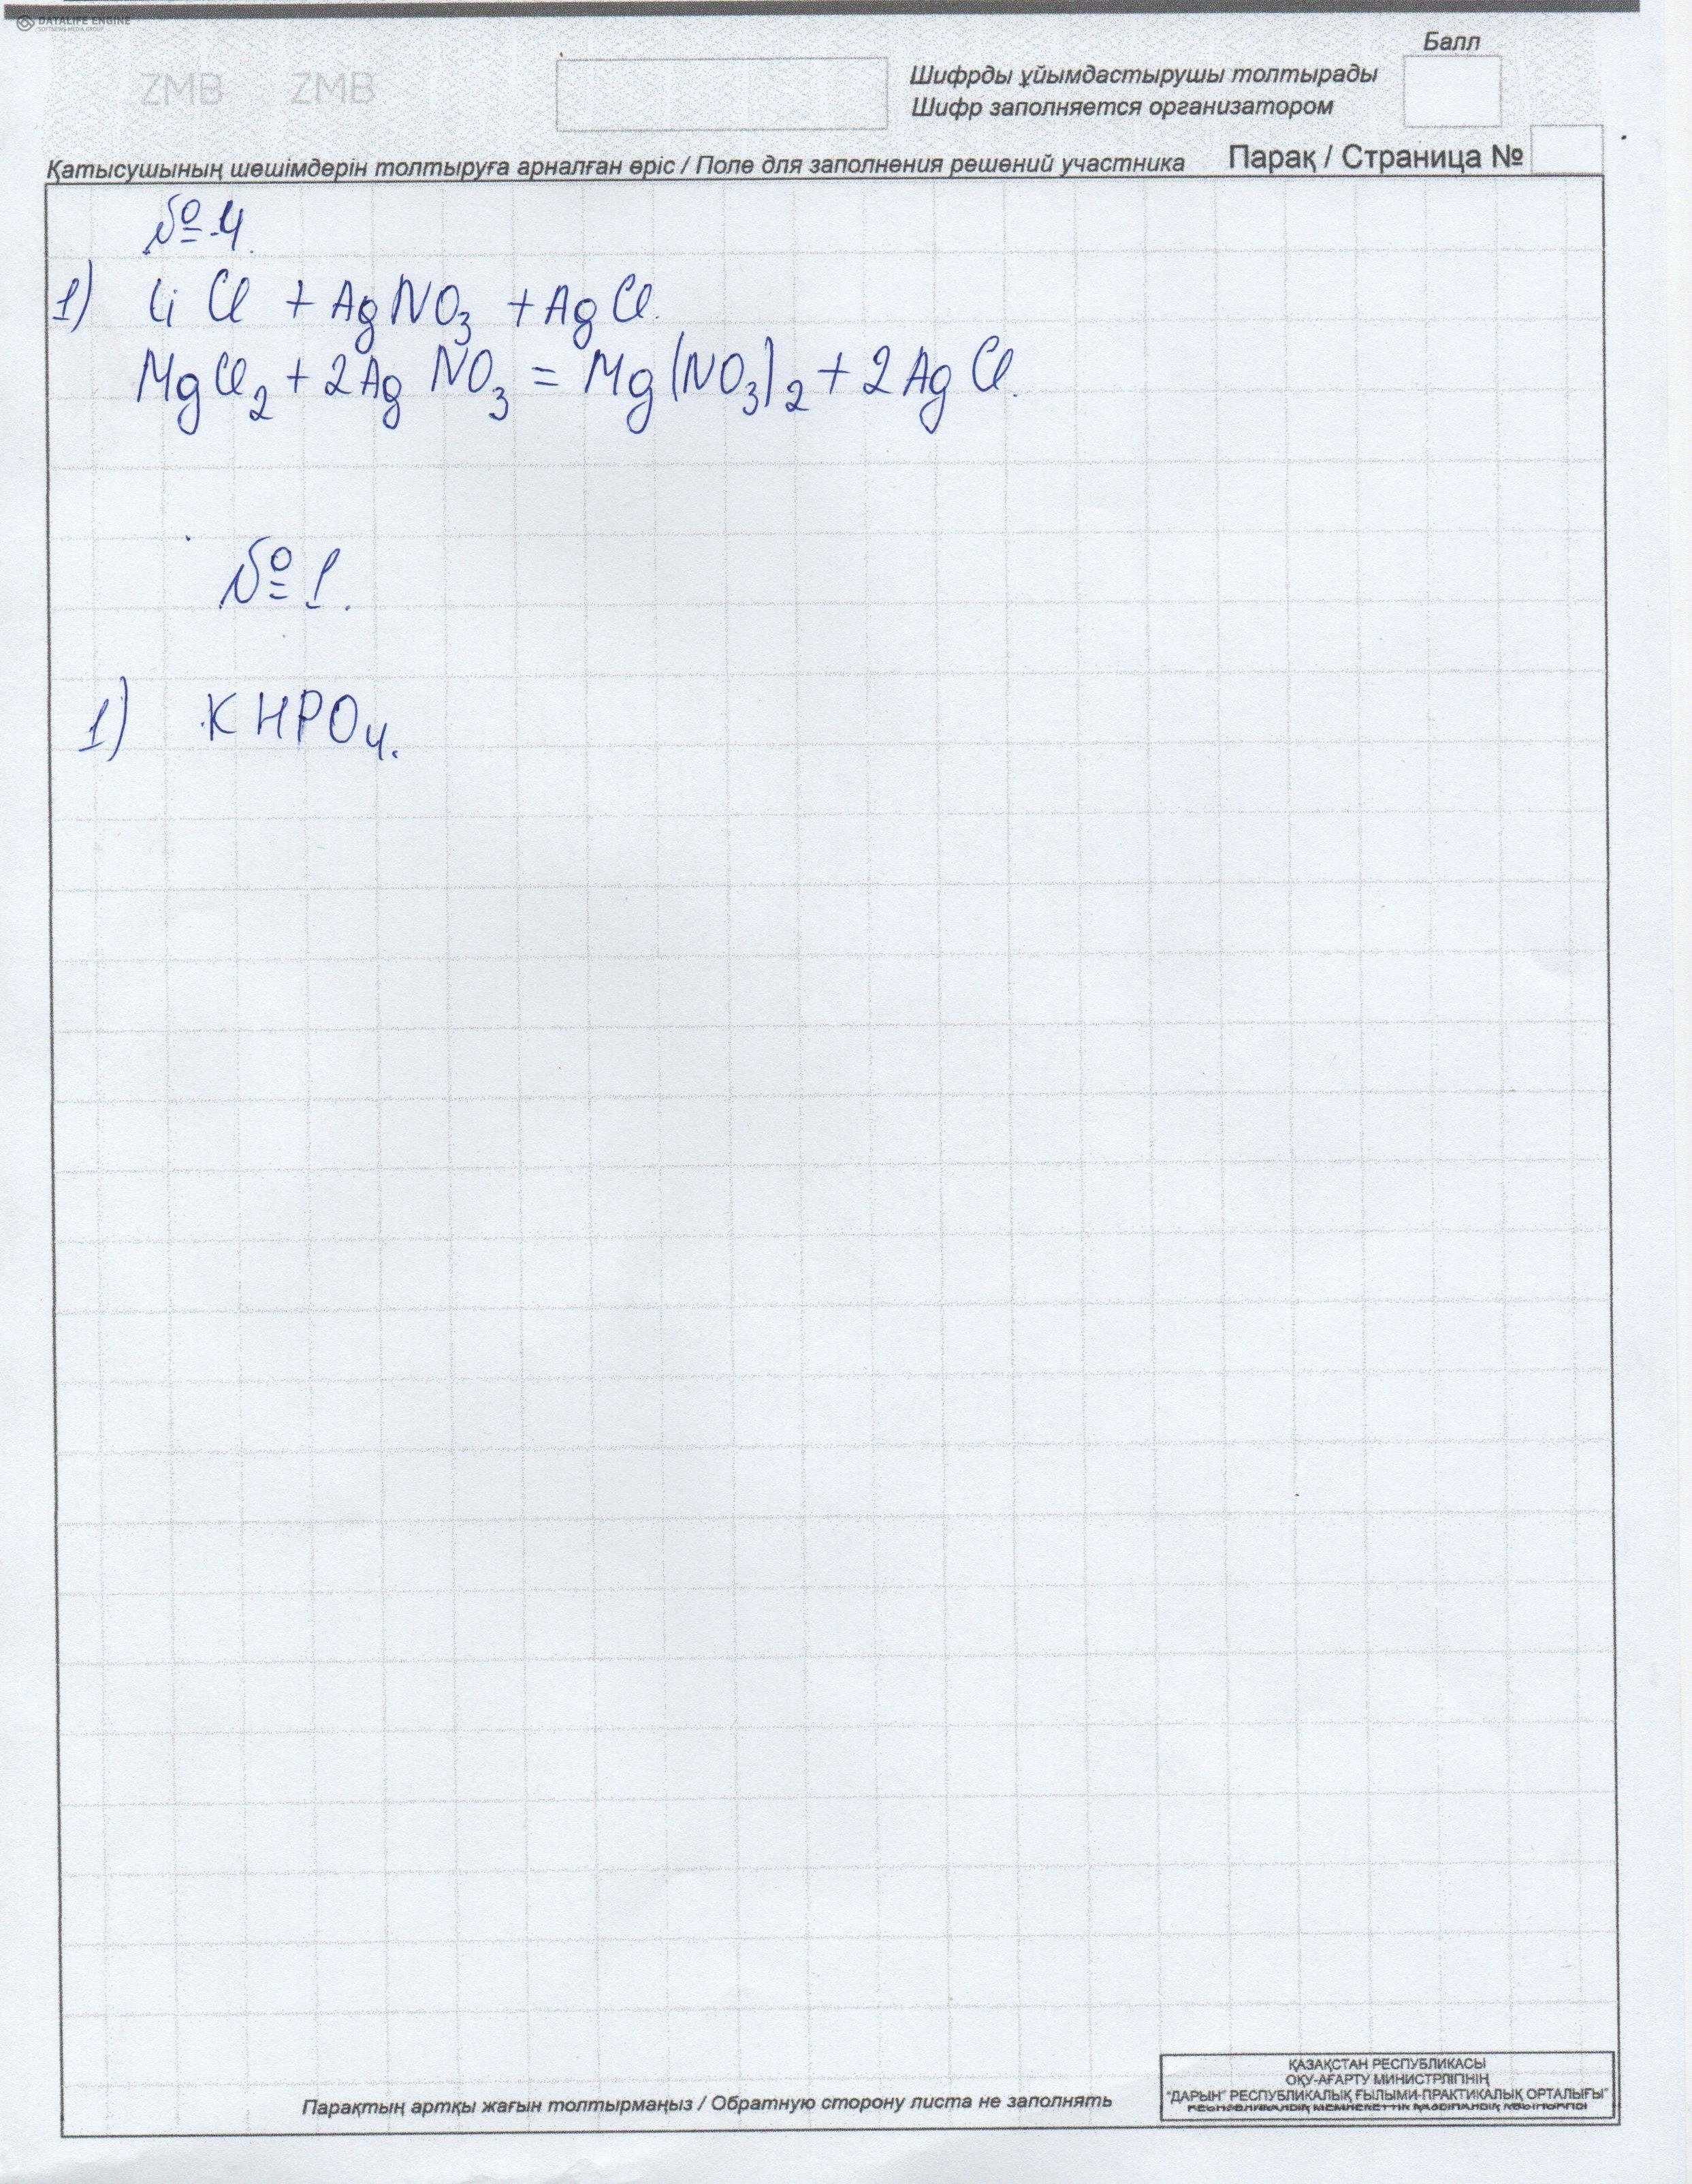 DATALIFE ENGINE
SOFTNEWS MEDIA GROUP
ZMB ZMB
Балл
Шифрды ұйымдастырушы толтырады
Шифр заполняется организатором
Қатысушының шешімдерін толтыруға арналған өріс / Поле для заполнения решений участника
Парақ / Страница №
№ 4.
1) Li Cl + AgNO3 + AgCl.
MgCl2 + 2AgNO3 = Mg(NO3)2 + 2AgCl.
№ 1.
1) KHPO4.
Парақтың артқы жағын толтырмаңыз / Обратную сторону листа не заполнять
ҚАЗАҚСТАН РЕСПУБЛИКАСЫ
ОҚУ-АҒАРТУ МИНИСТРЛІГІНІҢ
"ДАРЫН" РЕСПУБЛИКАЛЫҚ ҒЫЛЫМИ-ПРАКТИКАЛЫҚ ОРТАЛЫҒЫ"